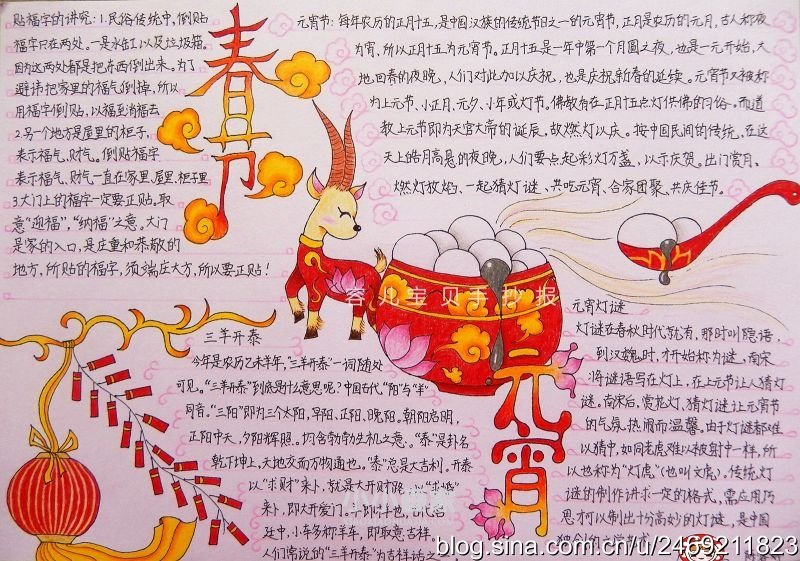 贴福字的讲究：1.民俗传统中，倒贴
福字只在两处。一是水缸以及垃圾箱。
因为这两处都是把东西倒出来。为了
避讳把家里的福气倒掉，所以
用福字倒贴，以福至消福去
2.另个地方是屋里的柜子，
表示福气，财气。倒贴福字
表示福气，财气一直在家里，屋里，柜子里
3.大门上的福字一定要正贴。取
意“迎福”，“纳福”之意。大门
是家的入口，是庄重和恭敬的
地方，所贴的福字，须端庄大方，所以要正贴！
春节
元宵节：每年农历的正月十五，是中国汉族的传统节日之一的元宵节，正月是农历的元月，古人称夜
为宵，所以正月十五为元宵节。正月十五是一年中第一个月圆之夜，也是一元开始，大
地回春的夜晚，人们对此加以庆祝，也是庆祝新春的延续。元宵节又被称
为上元节、小正月、元夕、小年或灯节，佛教有在正月十五点灯供佛的习俗。而道
教上元节即为天官大帝的诞辰，故燃灯以庆。按中国民间的传统，在这
天上皓月高悬的夜晚，人们要点起彩灯万盏，以示庆贺。出门赏月、
燃灯放焰、一起猜灯谜、共吃元宵、合家团聚、共庆佳节。
容儿宝贝手抄报
三羊开泰
今年是农历乙未羊年，“三羊开泰”一词随处
可见。“三羊开泰”到底是什么意思呢？中国古代，“阳”与“羊”
同音。“三阳”即为三个太阳，早阳、正阳、晚阳。朝阳启明，
正阳中天，夕阳辉照，均含勃勃生机之意。“泰”是卦名
乾下坤上，天地交而万物通也。“泰”总是大吉利，开泰
以“求财”来卜，就是大开财路，以“求婚”
来卜，即大开爱门。
廷中，小车多称羊车，即取意吉祥。
人们常说的“三羊开泰”为吉祥话之一。
元宵
元宵灯谜
灯谜在春秋时代就有，那时叫隐语，
到汉魏时，才开始称为谜。南宋
将谜语写在灯上，在上元节让人猜灯
谜。南宋后，赏花灯，猜灯谜让元宵节
的气氛，热闹而温馨。由于灯谜都难
以猜中，如同老虎难以被射中一样，所
以也称为“灯虎”（也叫文虎）。传统灯
谜的制作讲求一定的格式，需应用巧
思才可以制出十分高妙的灯谜，是中国
独创的文学
blog.sina.com.cn/u/2469211823